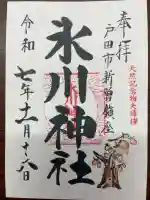 奉拝
戸田市新曽鎮座
天然記念物夫婦欅
氷川神社
令和七年十一月十六日